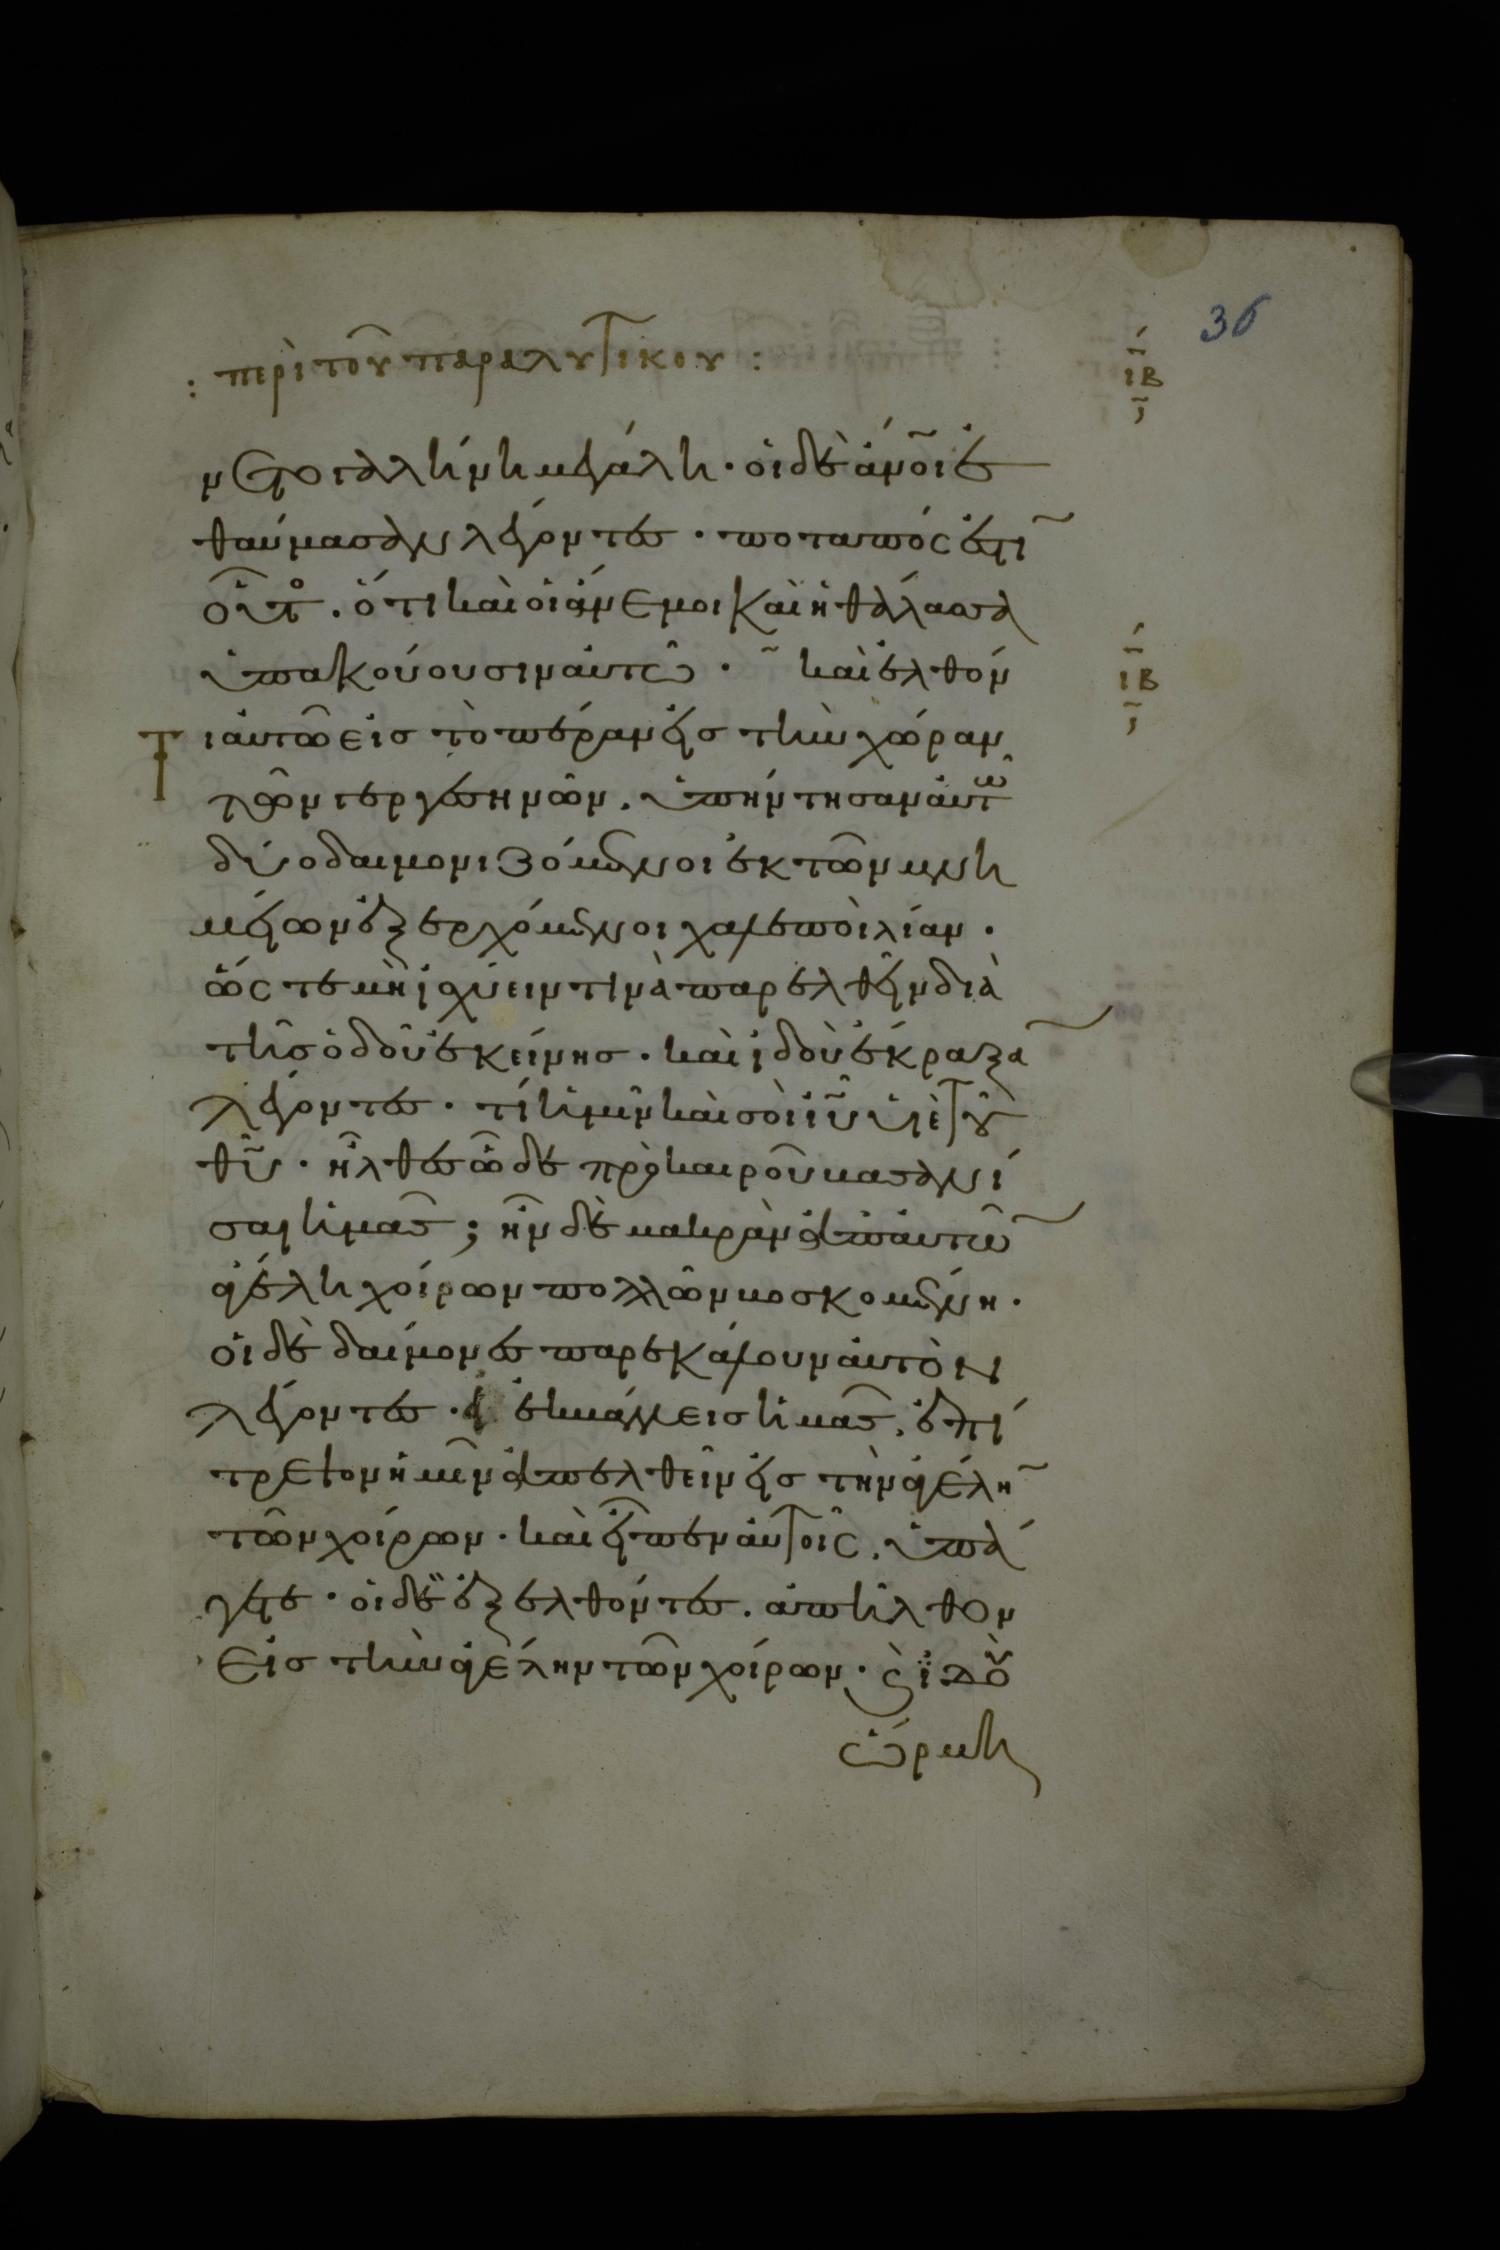 36
: περὶ τοῦ παραλυτικοῦ :
ΙΒ
νετο γαλήνη μεγάλη · οἱ δὲ ἀν̅ο̅ι ἐ
θαύμασαν λέγοντες · ποταπός ἐστι̅
οὗτο . ὅτι καὶ οἱ ἄνεμοι καὶ ἡ θάλασσα
ὑπακούουσιν αὐτῶ · καὶ ἐλθόν
ΙΒ
τι αὐτῶ εἰς τὸ πέραν εἰς τὴν χώραν
τῶν γεργεσηνῶν . ὑπήντησαν αὐτῶ
δύο δαιμονιζόμενοι ἐκ τῶν μνη
μείων ἐξερχόμενοι χαλεποὶ λίαν .
ὥστε μὴ ἰσχύειν τινὰ παρελθεῖν διὰ
τῆς ὁδοῦ ἐκείνης · καὶ ἰδοὺ ἔκραξα̅
λέγοντες · τί ἡμῖν καὶ σοὶ ι̅υ̅ υἱὲ τοῦ
θ̅υ̅ · ἦλθες ὧδε πρὸ καιροῦ βασανί
σαι ἡμᾶς ; ἦν δὲ μακρὰν ἀπ αὐτῶ̅
ἀγέλη χοίρων πολλῶν βοσκομένη ·
οἱ δὲ δαίμονες παρεκάλουν αὐτὸν
λέγοντες · εἰ ἐκβάλλεις ἡμᾶς , ἐπί
τρεψον ἡμῖν ἀπελθεῖν εἰς τὴν ἀγέλη̅
τῶν χοίρων · καὶ εἶπεν αὐτοῖς , ὑπά
γετε · οἱ δὲ ἐξελθόντες . ἀπῆλθον
εἰς τὴν ἀγέλην τῶν χοίρων · ϗ ἰδοὺ
ὥρμη